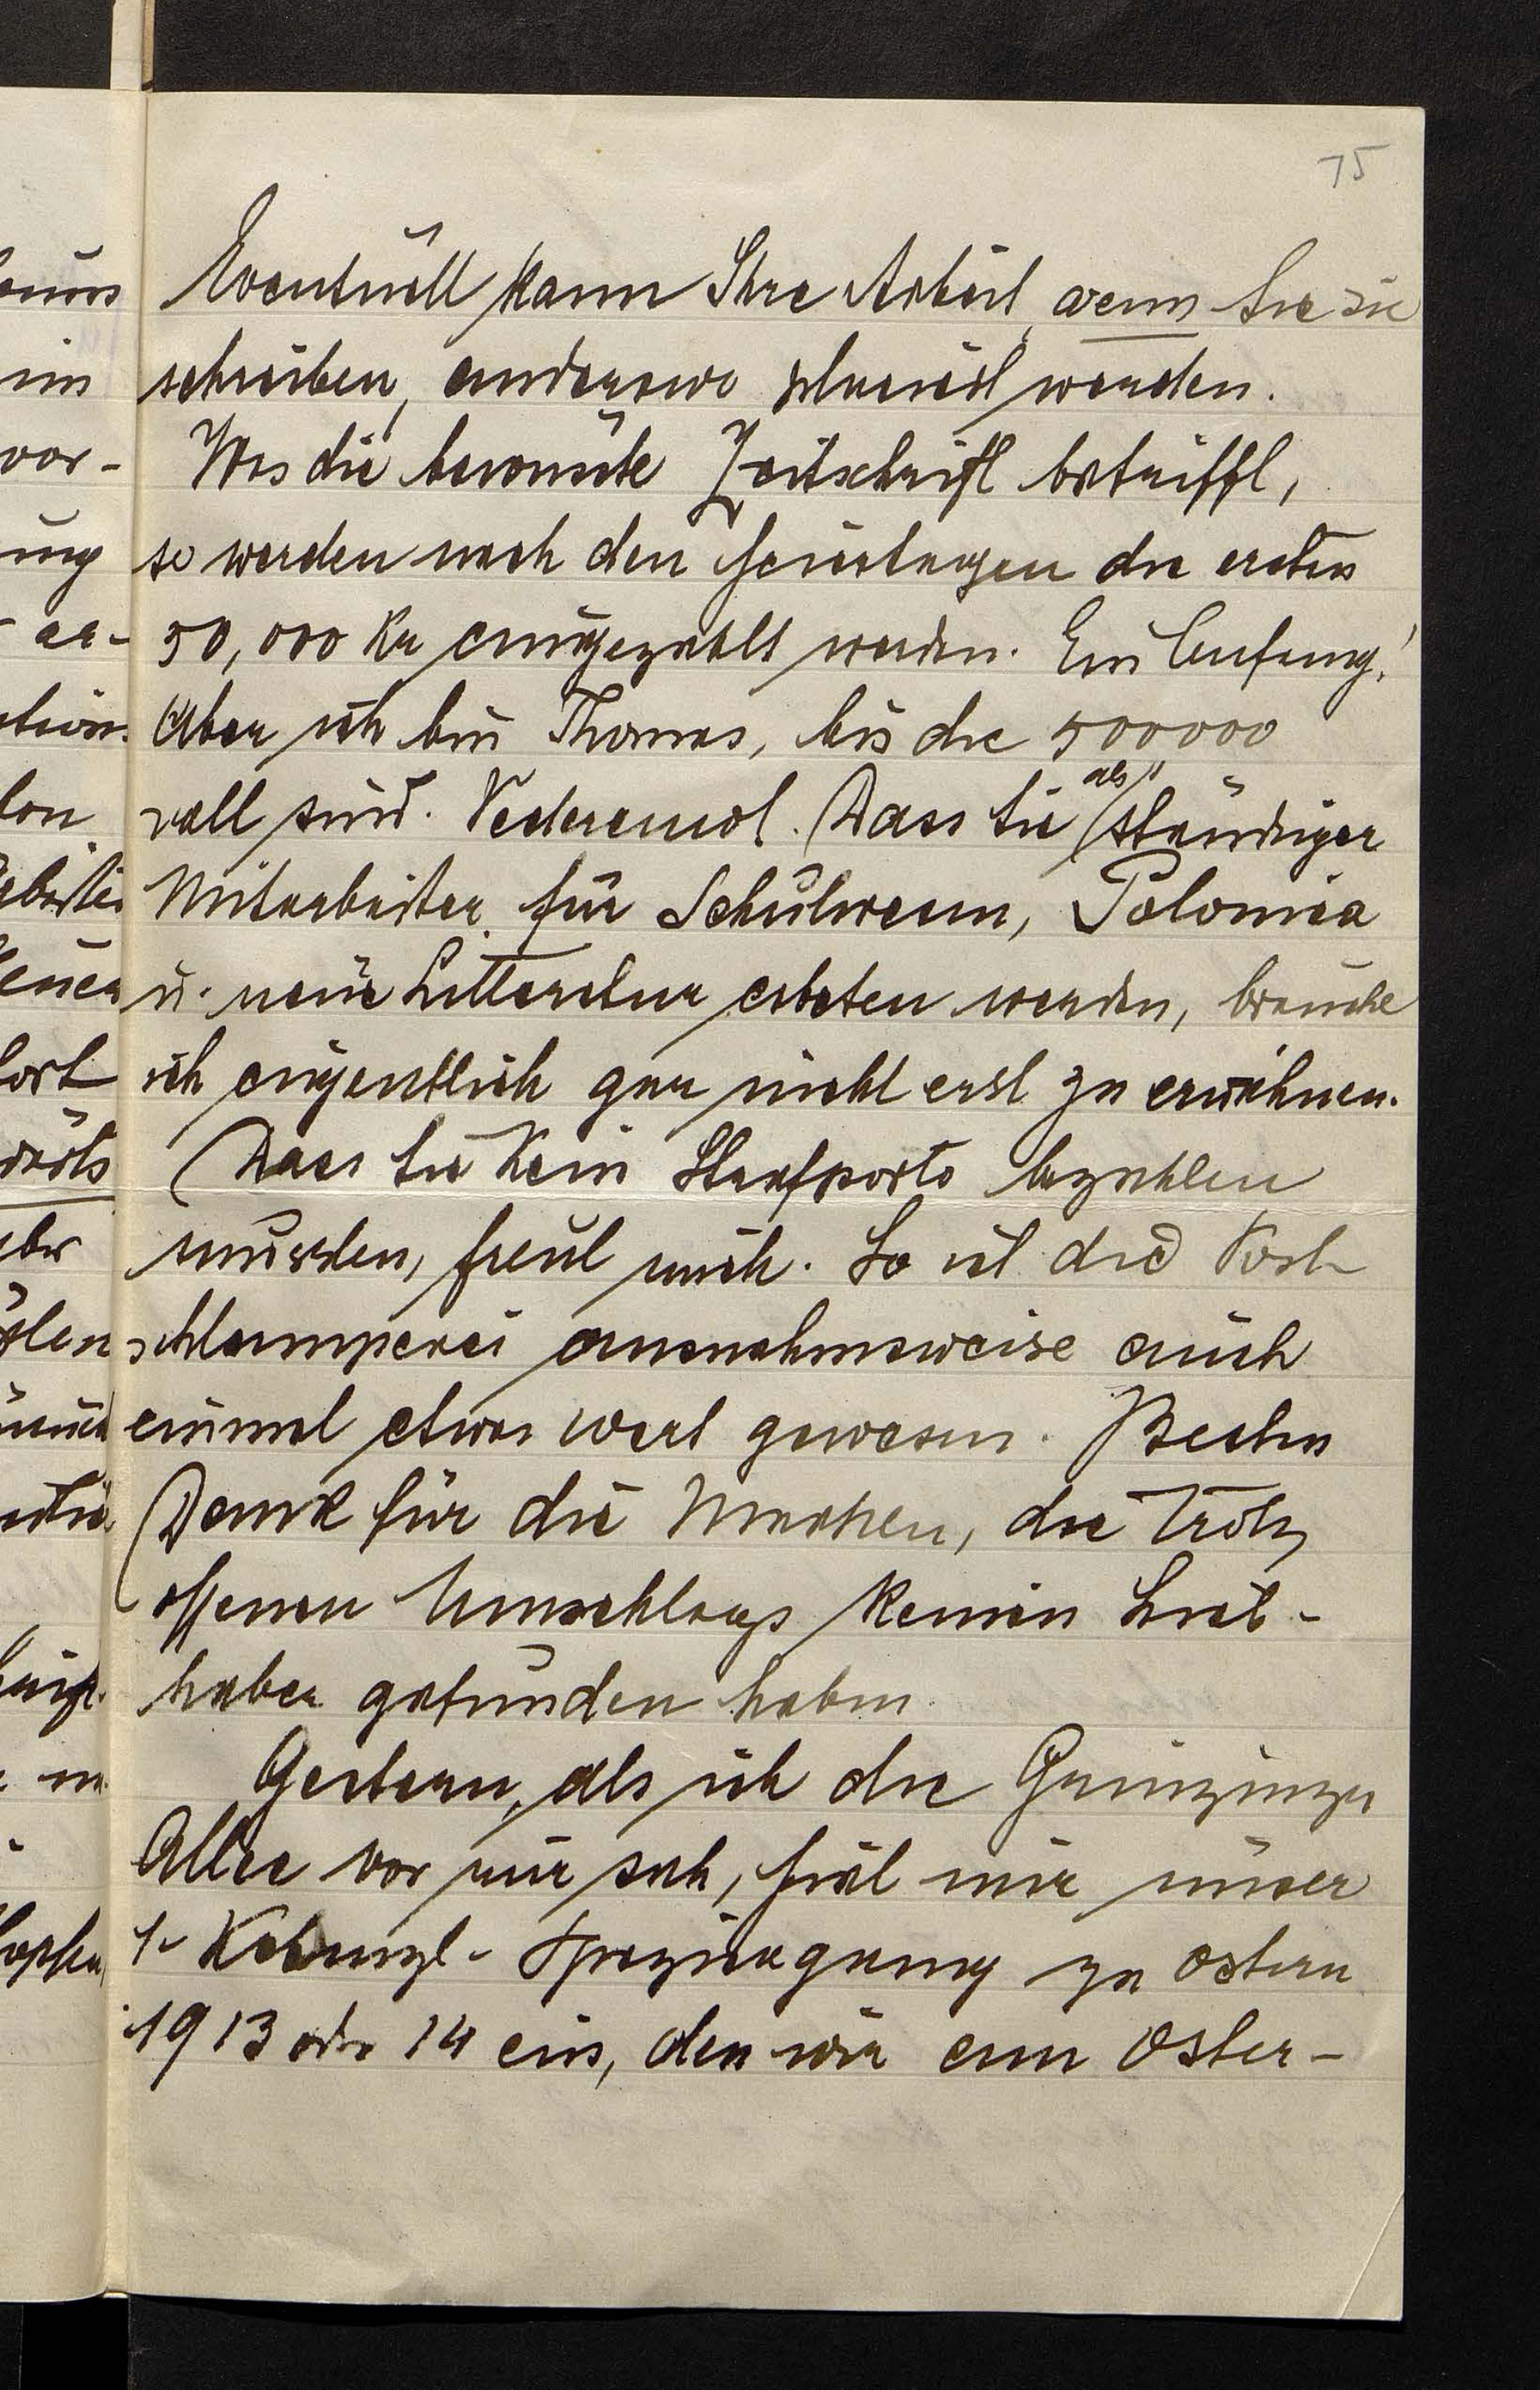 75
Eventuell kann Ihre Arbeit, wenn Sie sie
schreiben, anderswo placiert werden.
Was die bewusste Zeitschrift betrifft,
so werden nach den Feiertagen die ersten
50,000 Kr eingezahlt werden. Ein Anfang!
Aber ich bin Thomas, bis die 500000
voll sind. Vederemol. Dass Sie als ständiger
Mitarbeiter für Schulwesen, Polonica
u. neue Litteratur erbeten werden, brauche
ich eigentlich gar nicht erst zu erwähnen.
Dass Sie kein Strafporto bezahlen
mussten, freut mich. So ist die Post-
schlamperei ausnahmsweise auch
einmal etwas wert gewesen. Besten
Dank für die Marken, die trotz
offenen Umschlags keinen Lieb-
haber gefunden haben.
Gestern, als ich die Grinzinger
Allee vor mir sah, fiel mir unser
1. Kobenzl-Spaziergang zu Ostern
1913 oder 14 ein, den wir am Oster-